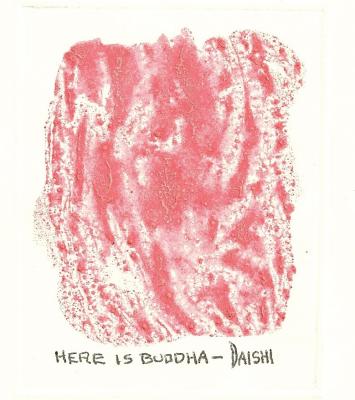 HERE IS BUDDHA — DAISHI